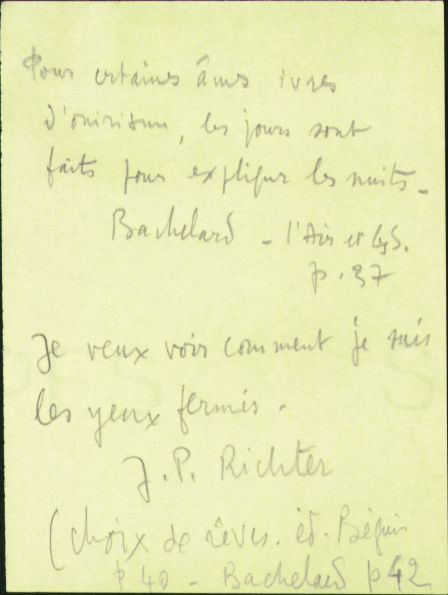 Pour certaines âmes ivres
d'onirisme, les jours sont
faits pour expliquer les nuits -
Bachelard - l'Air et les S.
p. 37
Je veux voir comment je suis
les yeux fermés -
J. P. Richter
(choix de rêves. éd. Béguin
p 40 - Bachelard p 42